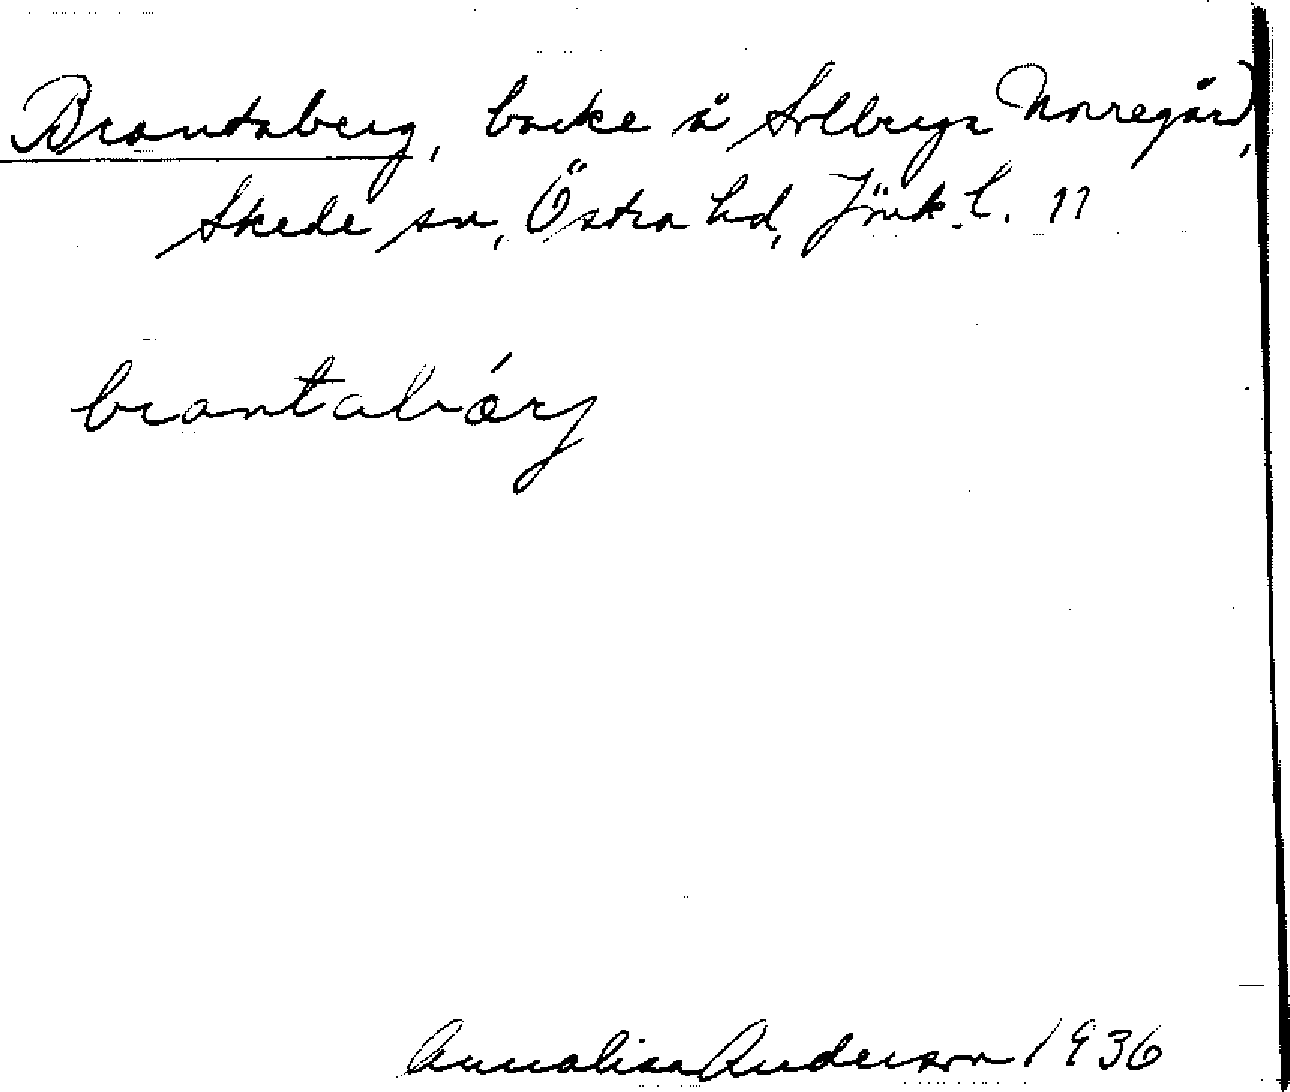 Brantaberg, backe å Solberga Norregård,
Skede sn, Östra hd, Jönk. l. 11
brantabárj
Annalisa Anderson 1936